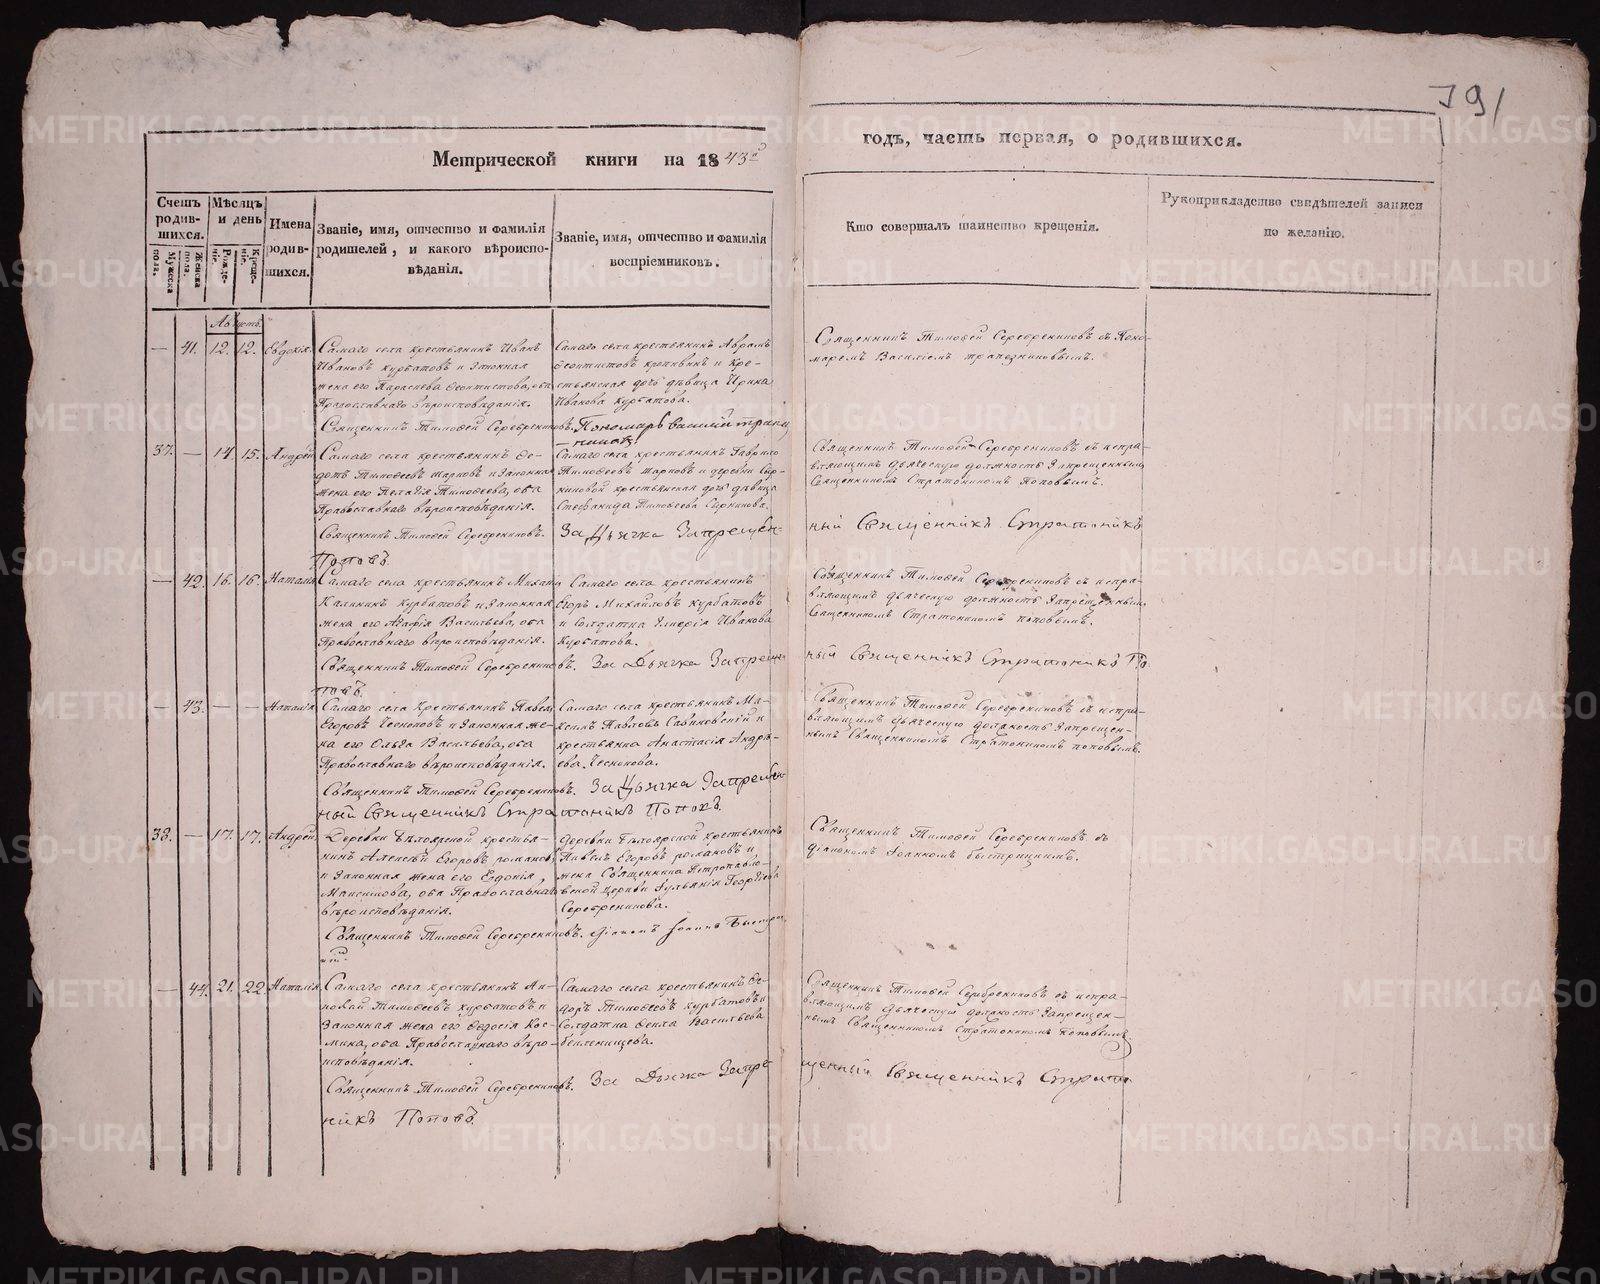 791
Метрической книги на 1843й
годъ, часть первая, о родившихся.
Счетъ родив-
шихся.
Мужеска пола.
Женска пола.
Мѣсяцъ и день
Рожде-
ніе.
Креще-
ніе.
Имена
родив-
шихся.
Званіе, имя, отчество и фамилія
родителей, и какого вѣроиспо-
вѣданія.
Званіе, имя, отчество и фамилія
воспріемниковъ.
Кто совершалъ таинство крещенія.
Рукоприкладство свидѣтелей записи
по желанію.
Августъ.
— 41. 12. 12. Евдокія.
Самаго села крестьянинъ Иванъ
Ивановъ Курбатовъ и законная
жена его Параскева Леонтистова, оба
Православнаго вѣроисповѣданія.
Самаго села крестьянинъ Авраамъ
и кре-
стьянская дочь дѣвица Ирина
Иванова Курбатова.
Священникъ Тимофей Серебрениковъ съ Поно-
маремъ Василіемъ
Священникъ Тимофей Серебрениковъ. Пономарь Василій
37. — 14. 15. Андрей
Самаго села крестьянинъ Ѳе-
дотъ Тимофеевъ и законная
жена его Пелагія Тимофеева, оба
Православнаго вѣроисповѣданія.
Самаго села крестьянинъ Гаврило
Тимофеевъ и деревни
крестьянская дочь дѣвица
Стефанида Тимофеева
Священникъ Тимофей Серебрениковъ съ испра-
вляющимъ дьяческую должность Запрещеннымъ
Священникомъ Стратоникомъ Поповымъ.
Священникъ Тимофей Серебрениковъ. За Дьячка Запрещен-
ный Священникъ Стратоникъ
Поповъ.
— 42. 16. 16. Наталія
Самаго села крестьянинъ Михаи
Калининъ Курбатовъ и законная
жена его Агафія Васильева, оба
Православнаго вѣроисповѣданія.
Самаго села крестьянинъ
Егоръ Михайловъ Курбатовъ
и Солдатка Иванова
Курбатова.
Священникъ Тимофей Серебрениковъ съ испра-
вляющимъ дьяческую должность Запрещеннымъ
Священникомъ Стратоникомъ Поповымъ.
Священникъ Тимофей Серебрениковъ. За Дьячка Запрещен
ный Священникъ Стратоникъ По-
повъ.
— 43. — — Наталія.
Самаго села крестьянинъ Павелъ
Егоровъ Чесноковъ и законная же-
на его Ольга Васильева, оба
Православнаго вѣроисповѣданія.
Самаго села крестьянинъ Ма-
ксимъ Павловъ Савиковскій и
крестьянка Анастасія Андрѣ-
ева Чеснокова.
Священникъ Тимофей Серебрениковъ съ испра-
вляющимъ дьяческую должность Запрещен-
нымъ Священникомъ Стратоникомъ Поповымъ.
Священникъ Тимофей Серебрениковъ. За Дьячка Запрещен-
ный Священникъ Стратоникъ Поповъ.
38. — 17. 17. Андрей.
Деревни Бѣлоярской крестья-
нинъ Алексѣй Егоровъ Романовъ
и законная жена его Евдокія
Максимова, оба Православнаго
вѣроисповѣданія.
Деревни Бѣлоярской крестьянинъ
Павелъ Егоровъ Романовъ и
жена Священника Петропавло-
вской церкви Іульянія Георгіева
Серебреникова.
Священникъ Тимофей Серебрениковъ съ
діакономъ Іоанномъ Быстрицкимъ.
Священникъ Тимофей Серебрениковъ. Діаконъ Іоаннъ Быстриц
кій.
— 44. 21. 22. Наталія
Самаго села крестьянинъ Ни-
колай Тимофеевъ Курбатовъ и
Законная жена его Ѳедосія Кос-
мина, оба Православнаго вѣро-
исповѣданія.
Самаго села крестьянинъ Ѳе-
доръ Тимофеевъ Курбатовъ и
Солдатка Ѳекла Васильева
Священникъ Тимофей Серебрениковъ съ испра-
вляющимъ дьяческую должность Запрещен-
нымъ Священникомъ Стратоникомъ Поповымъ.
Священникъ Тимофей Серебрениковъ. За Дьячка Запре-
щенный Священникъ Страто
никъ Поповъ.
METRIKI.GASO-URAL.RU